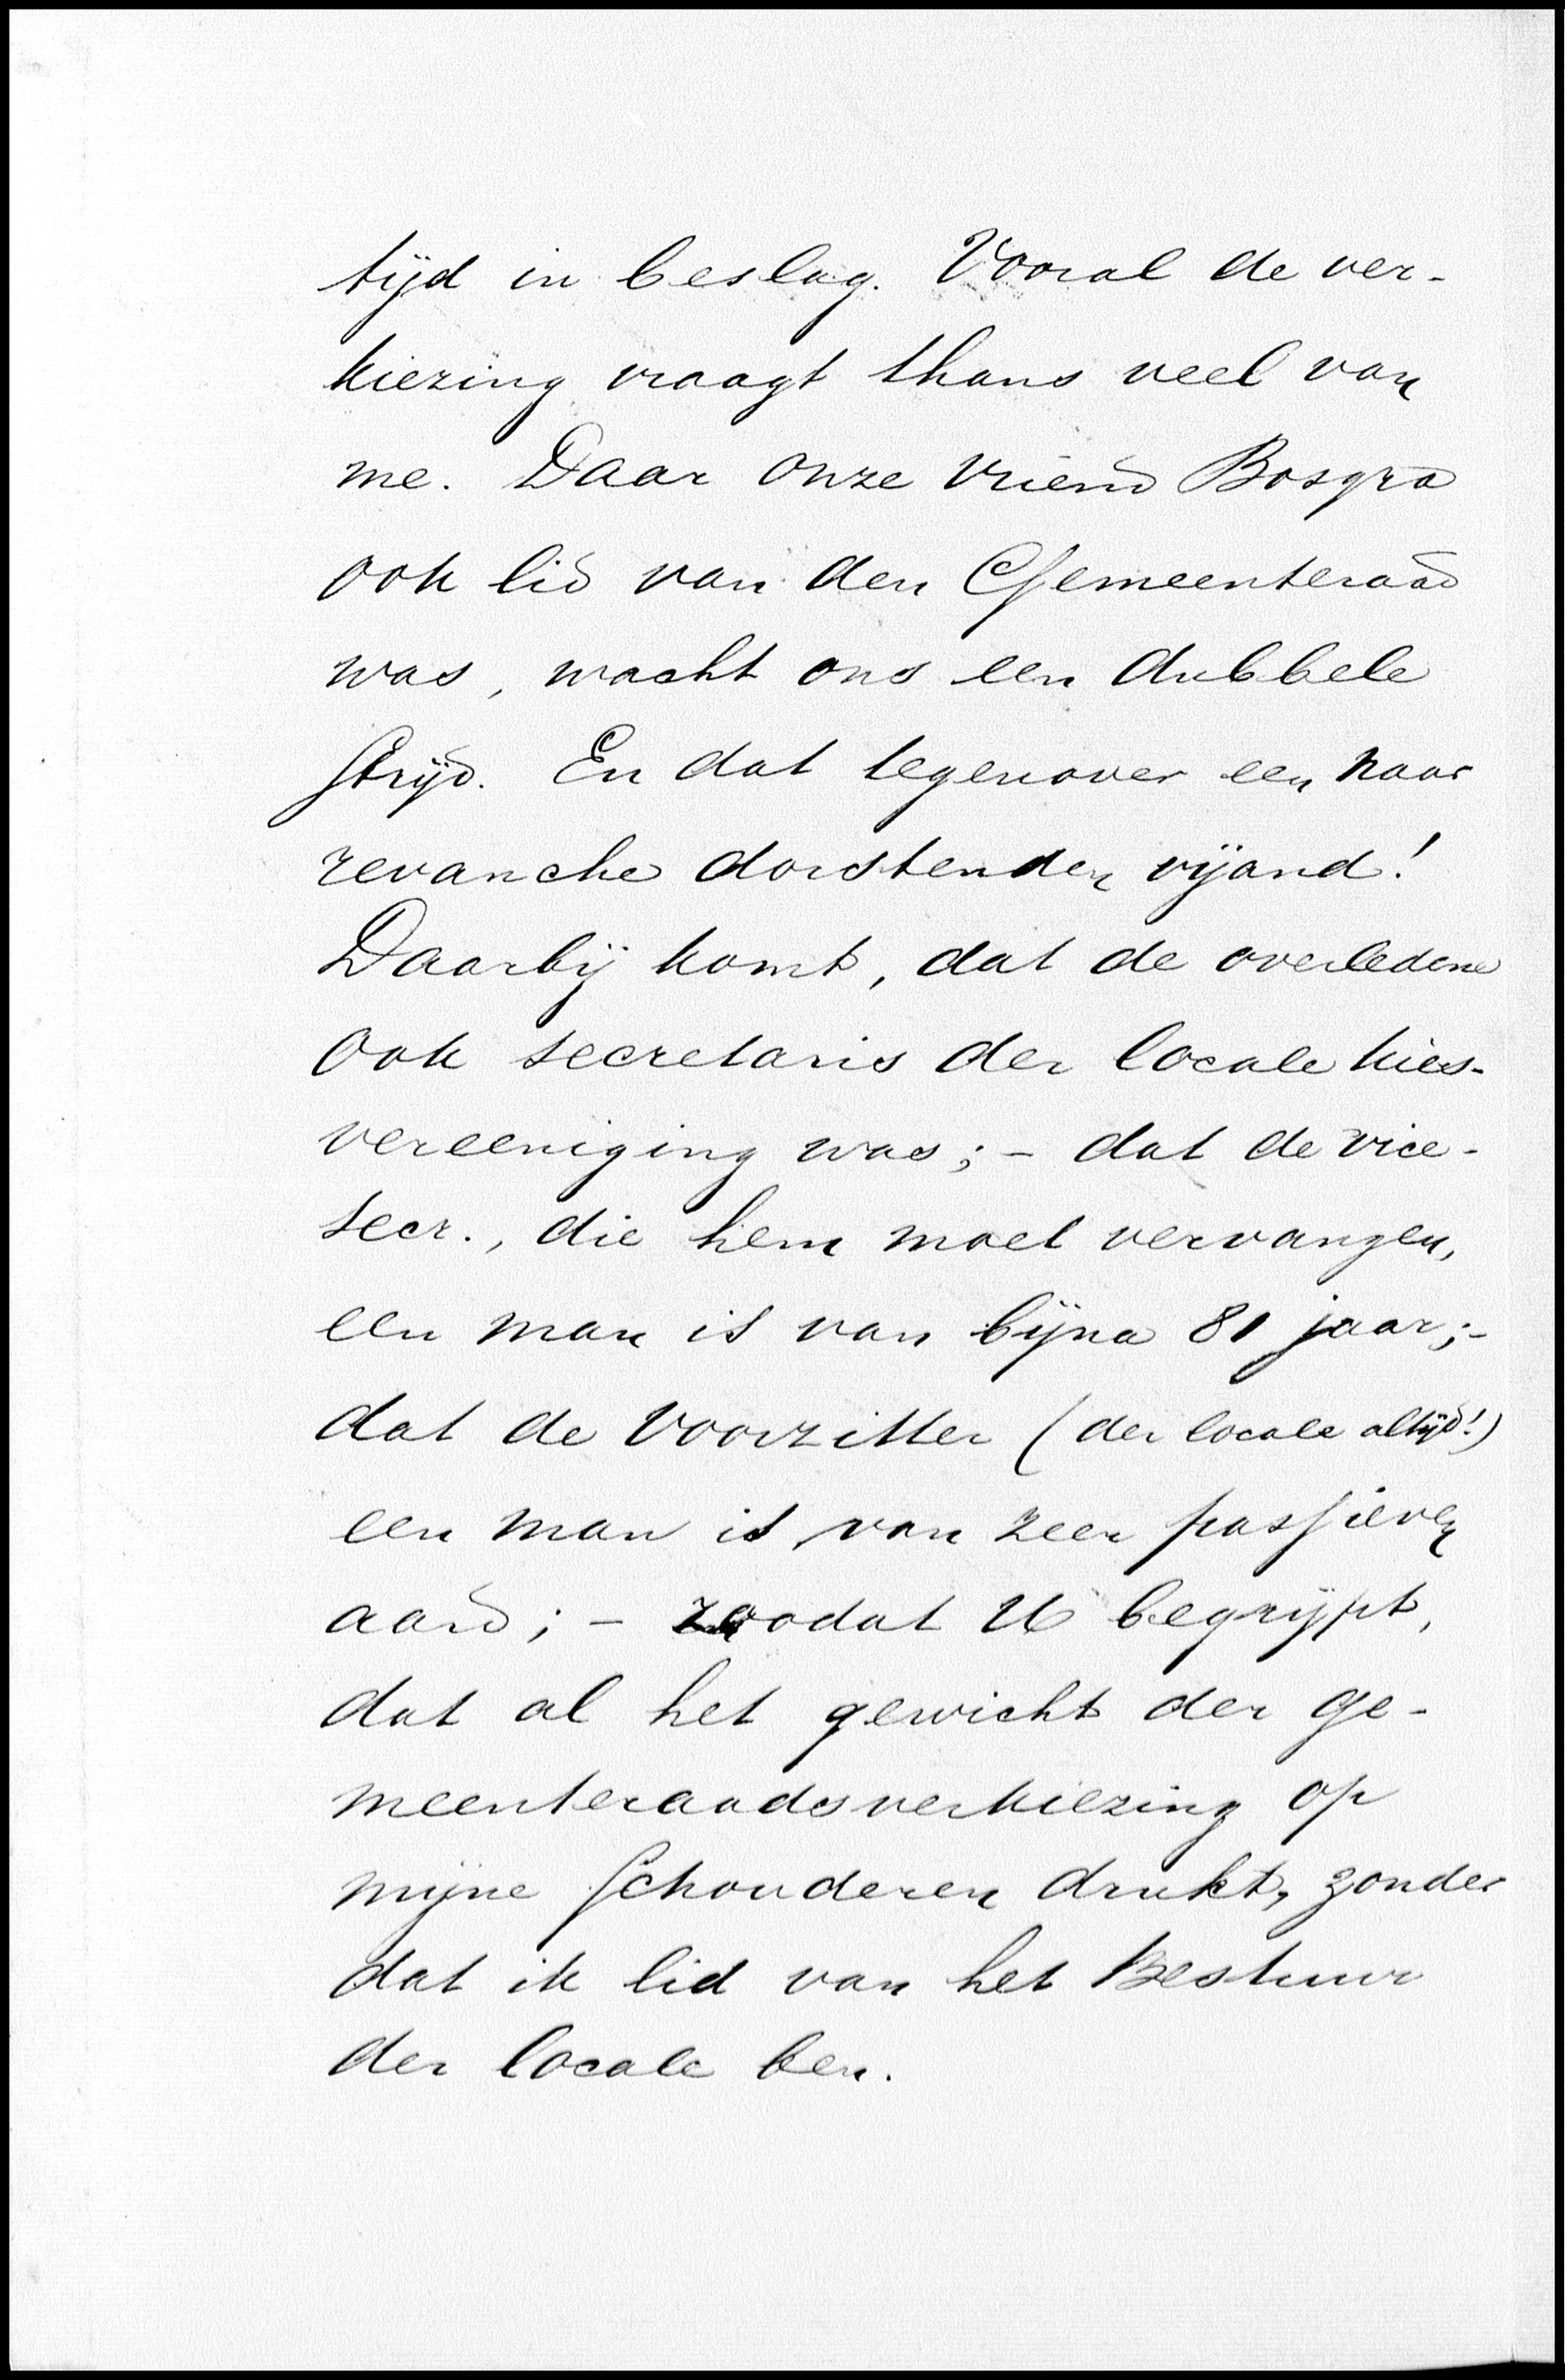 tijd in beslag. Vooral de ver-
kiezing vraagt thans veel van
me. Daar onze vriend Bosgra
ook lid van den Gemeenteraad
was, wacht ons een dubbele
strijd. En dat tegenover een naar
revanche dorstenden vijand!
Daarbij komt, dat de overledene
ook secretaris der locale kies-
vereeniging was; - dat de vice-
secr., die hem moet vervangen,
een man is van bijna 81 jaar; -
dat de voorzitter (der locale altijd!)
een man is van zeer passieven
aard; - zoodat U begrijpt,
dat al het gewicht der ge-
meenteraadsverkiezing op
mijne schouderen drukt, zonder
dat ik lid van het Bestuur
der locale ben.